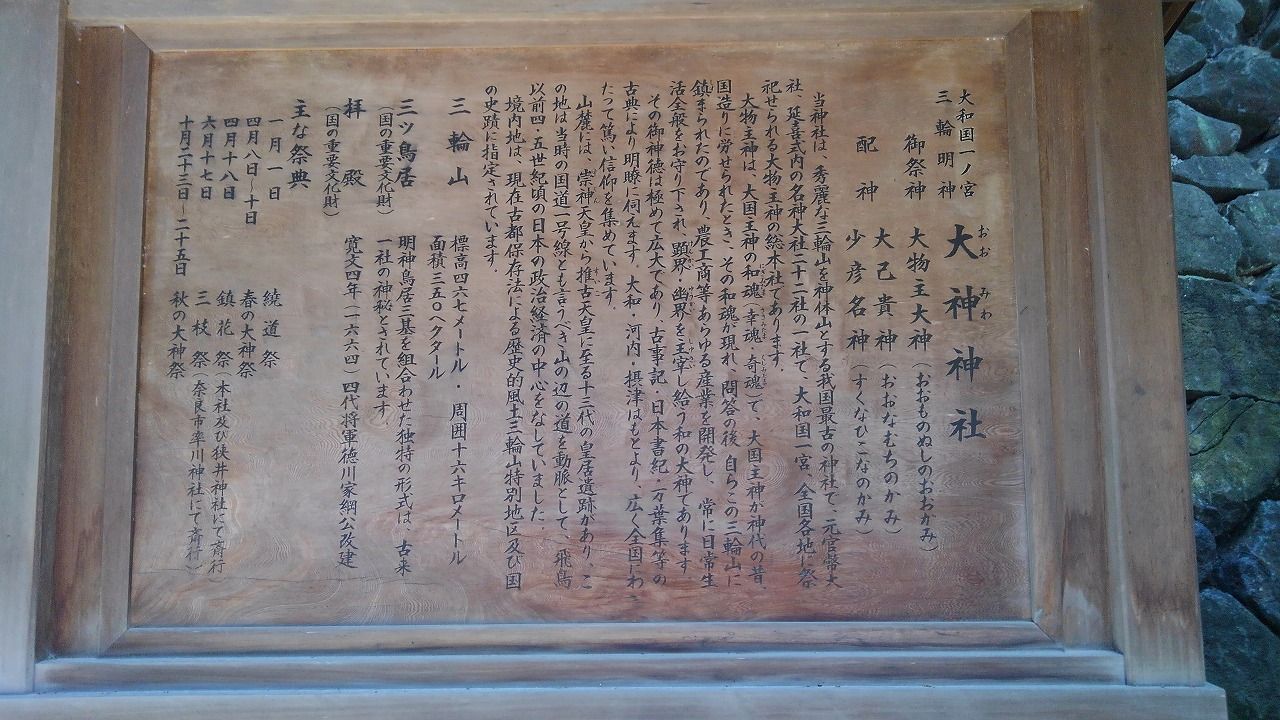 大和国一ノ宮
三輪明神
大神神社
おお みわ
御祭神 大物主大神(おおものぬしのおおかみ)
配神 大己貴神(おおなむちのかみ)
少彦名神(すくなひこなのかみ)
当神社は、秀麗な三輪山を神体山とする我国最古の神社で、元官幣大
社、延喜式内の名神大社二十二社の一社で、大和国一宮、全国各地に祭
祀せられる大物主神の総本社であります。
大物主神は、大国主神の和魂(幸魂・奇魂)で、大国主神が神代の昔、
国造りに労せられたとき、その和魂が現れ、問答の後、自らこの三輪山に
鎮まられたのであり、農工商等あらゆる産業を開発し、常に日常生
活全般をお守り下され、顕界、幽界を主宰し給う和の大神であります。
その御神徳は極めて広大であり、古事記・日本書紀・万葉集等の
古典により明瞭に伺えます。大和・河内・摂津はもとより、広く全国にわ
たって篤い信仰を集めています。
山麓には、崇神天皇から推古天皇に至る十三代の皇居遺跡があり、こ
の地は当時の国道一号線とも言うべき山の辺の道を動脈として、飛鳥
以前四・五世紀頃の日本の政治経済の中心をなしていました。
境内地は、現在古都保存法による歴史的風土三輪山特別地区及び国
の史蹟に指定されています。
三輪山 標高四六七メートル・周囲十六キロメートル
面積三五〇ヘクタール
三ツ鳥居 明神鳥居三基を組合わせた独特の形式は、古来
(国の重要文化財) 一社の神秘とされています。
拝殿 寛文四年(一六六四)四代将軍徳川家綱公改建
(国の重要文化財)
主な祭典
一月一日 繞道祭
四月八日〜十日 春の大神祭
四月十八日 鎮花祭(本社及び狭井神社にて斎行)
六月十七日 三枝祭(奈良市率川神社にて斎行)
十月二十三日〜二十五日 秋の大神祭